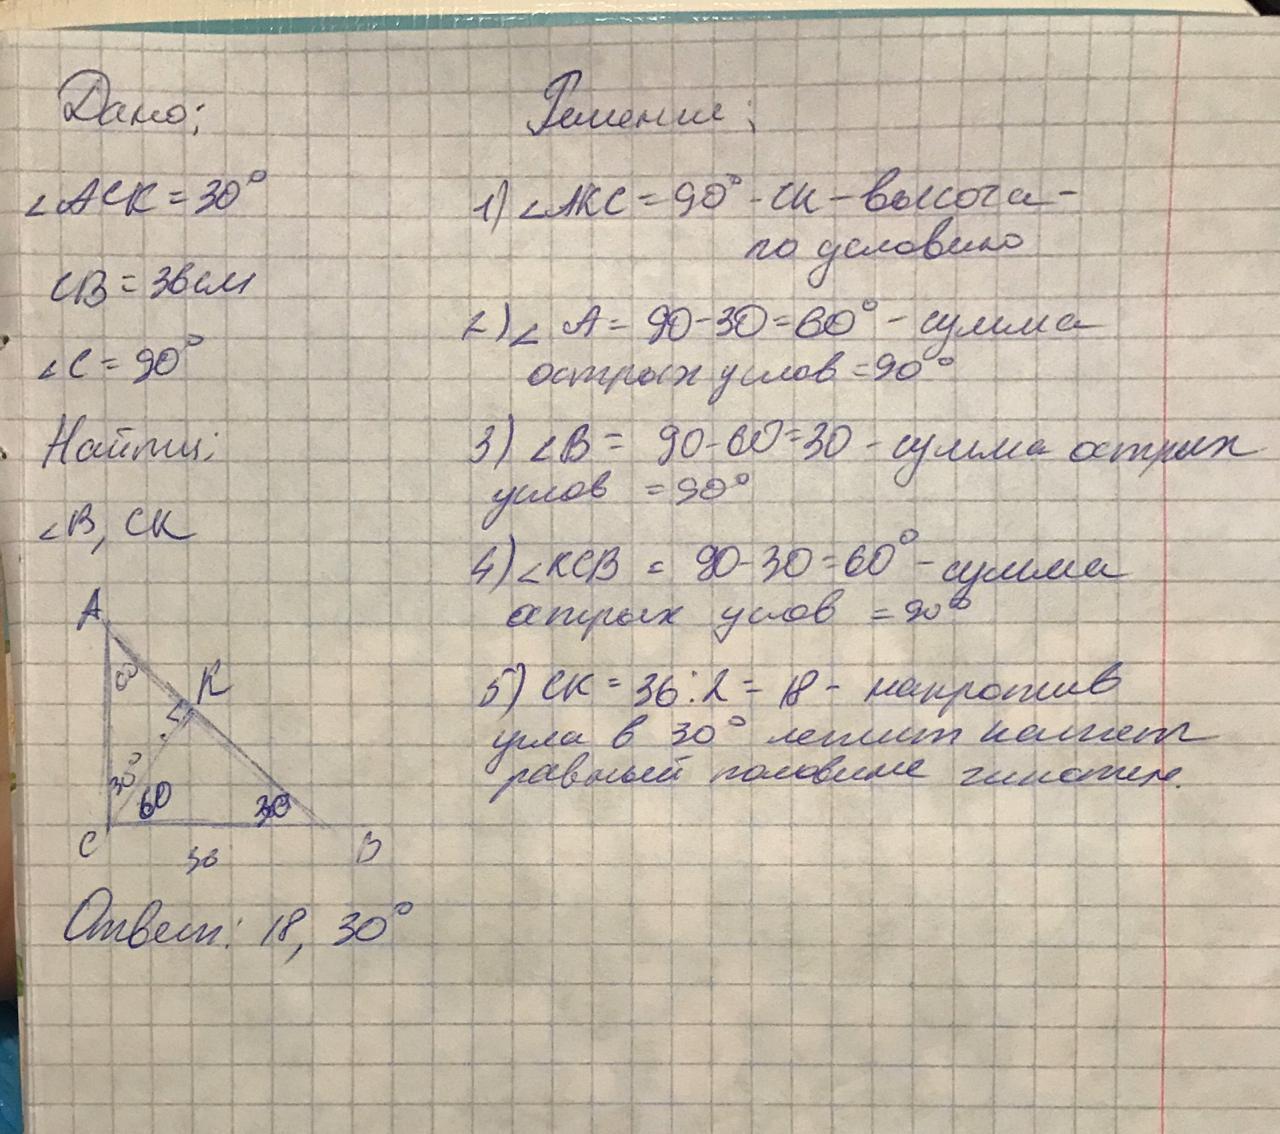 Дано:
∠ACK = 30°
CB = 36см
∠C = 90°
Найти:
∠B, CK
A
K
60
30°
60
30
C
36
B
Ответ: 18, 30°
Решение:
1) ∠AKC = 90° - CK - высота -
по условию
2) ∠ A = 90-30=60° - сумма
острых углов =90°
3) ∠B = 90-60=30 - сумма острых
углов =90°
4) ∠KCB = 90-30=60° - сумма
острых углов =90°
5) CK = 36:2 = 18 - напротив
угла в 30° лежит катет
равный половине гипотен.